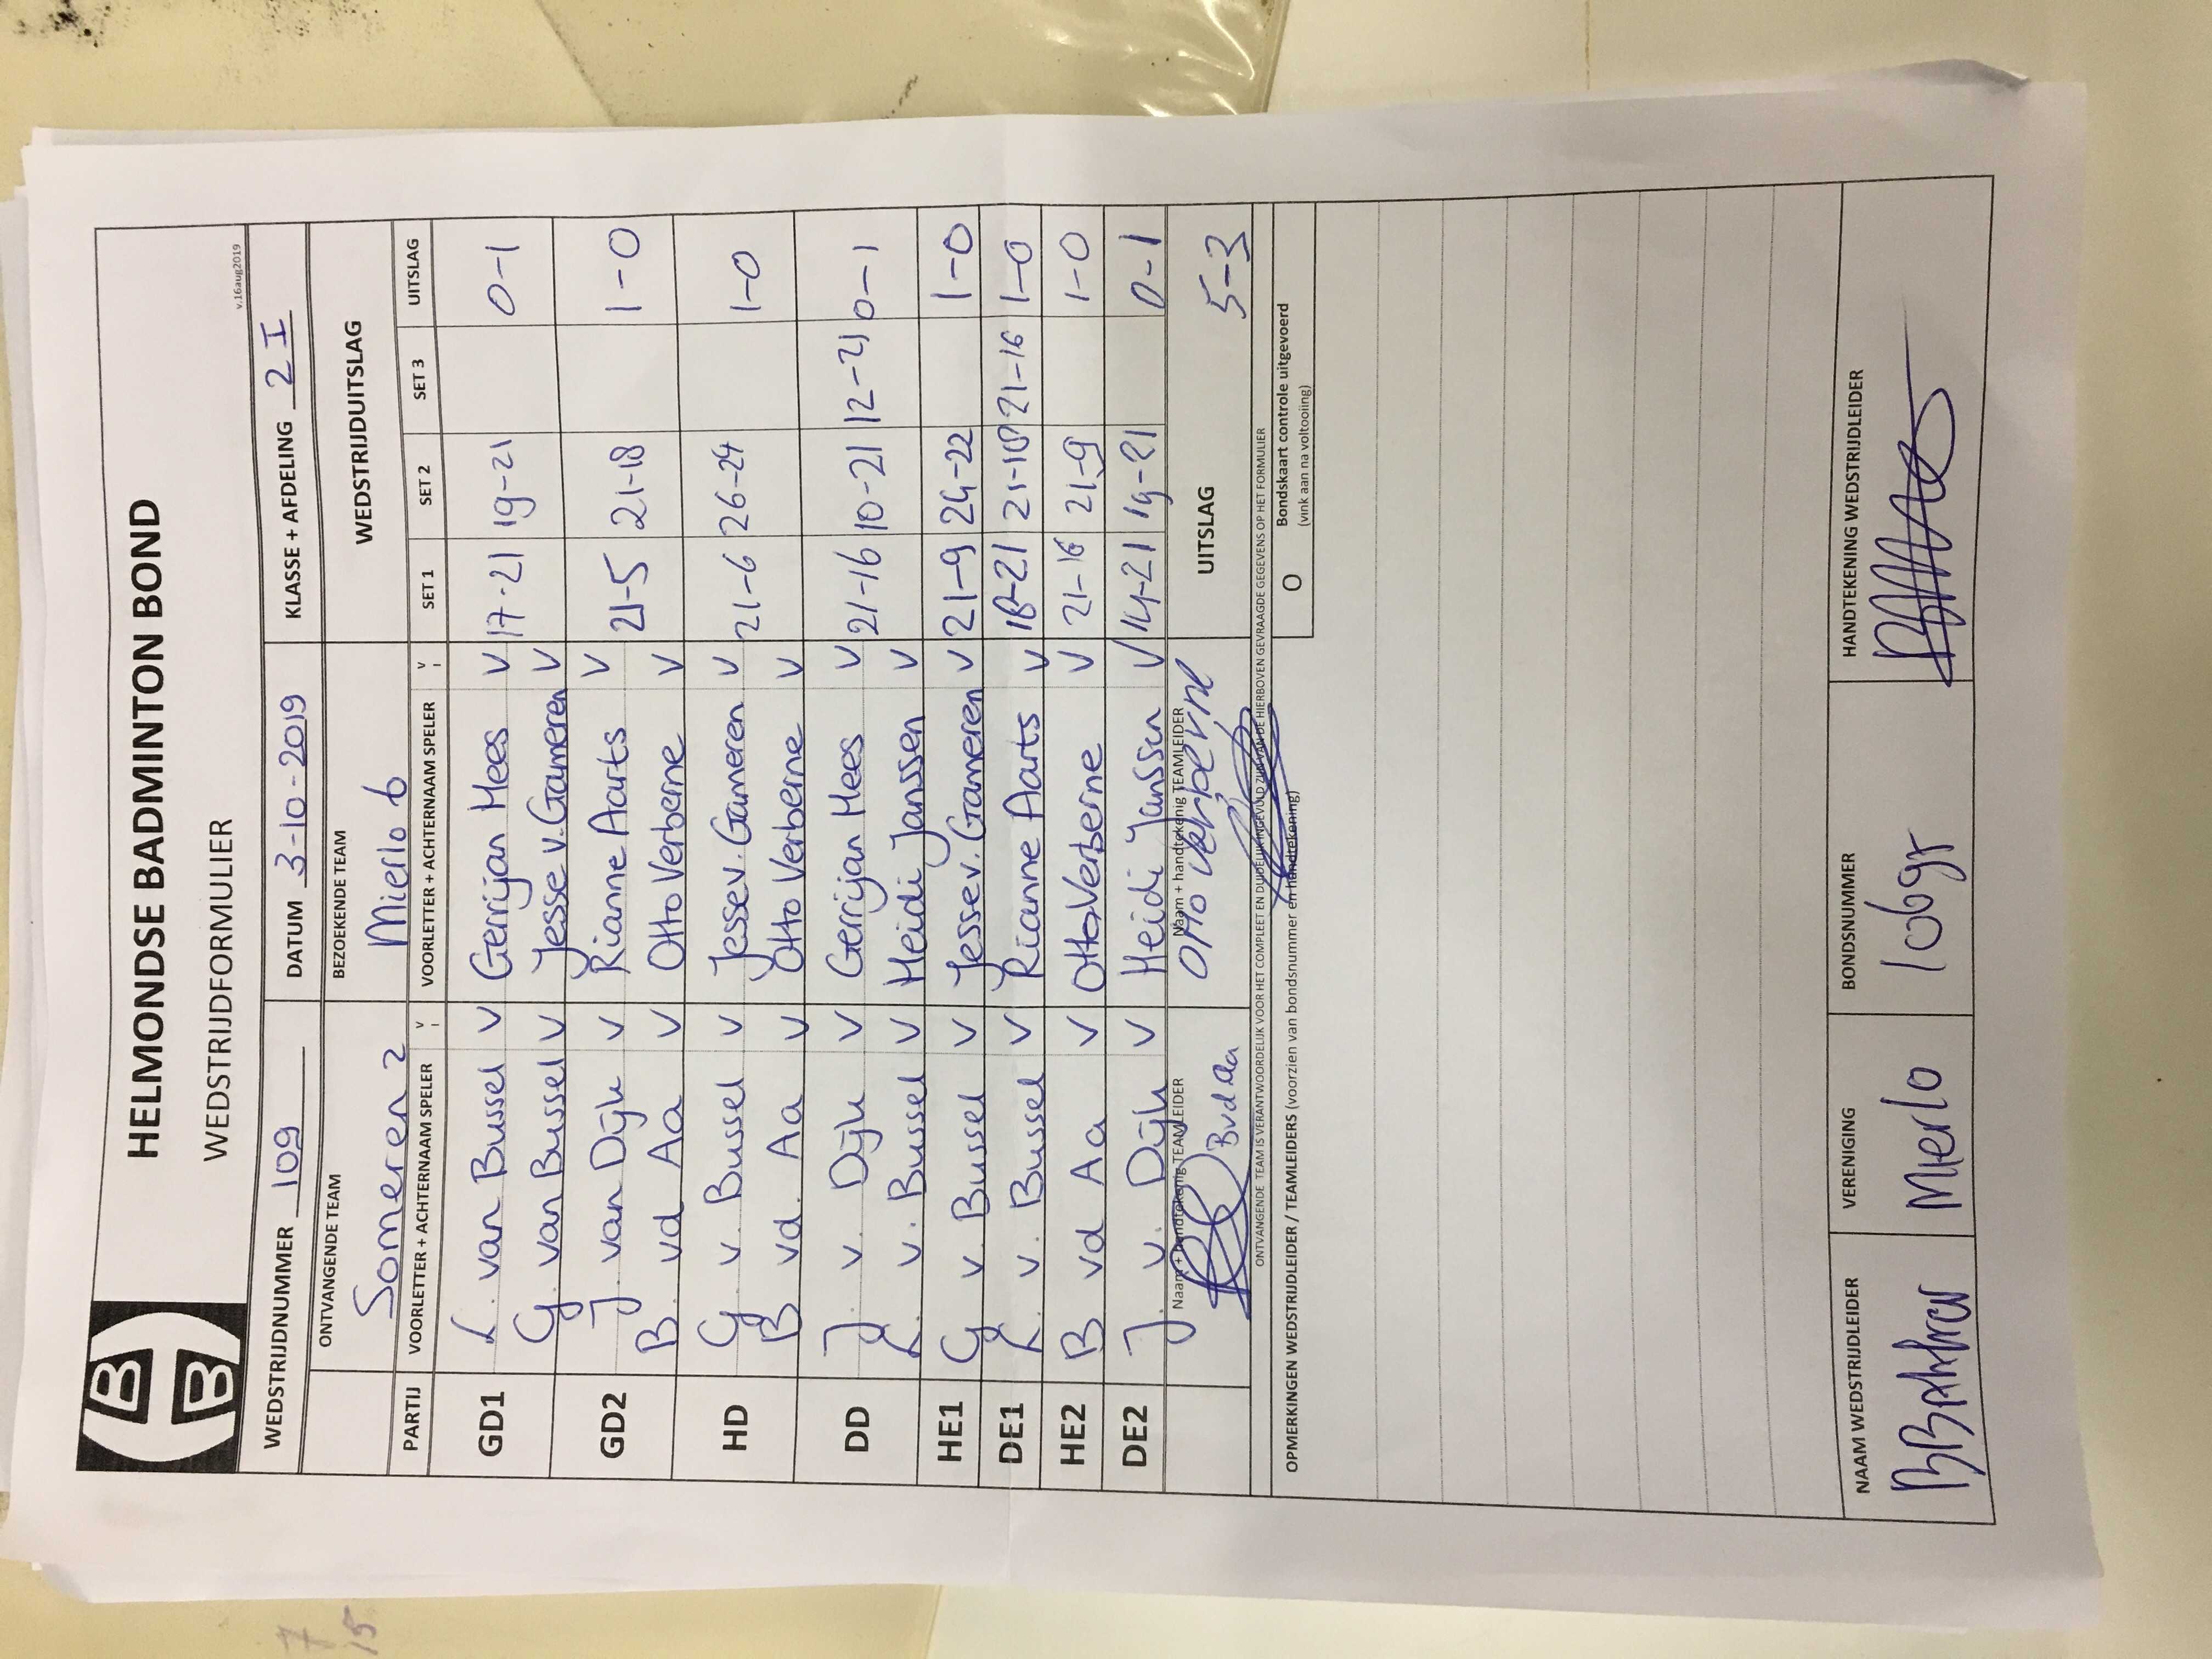 HELMONDSE BADMINTON BOND
WEDSTRIJDFORMULIER
v.16aug2019
WEDSTRIJDNUMMER 109 DATUM 3-10-2019 KLASSE + AFDELING 2 I
ONTVANGENDE TEAM BEZOEKENDE TEAM WEDSTRIJDUITSLAG
Someren 2 Mierlo 6
PARTIJ VOORLETTER + ACHTERNAAM SPELER V VOORLETTER + ACHTERNAAM SPELER V SET 1 SET 2 SET 3 UITSLAG
GD1 L. van Bussel V Gerrijan Mees V 17-21 19-21 0-1
G. van Bussel V Jesse v. Gameren V
GD2 J. van Dijk V Rianne Aarts V 21-5 21-18 1-0
B. vd Aa V Otto Verberne V
HD G. v. Bussel V Jesse v. Gameren V 21-6 26-24 1-0
B vd. Aa V Otto Verberne V
DD J. v. Dijk V Gerrijan Mees V 21-16 10-21 12-21 0-1
L. v. Bussel V Heidi Janssen V
HE1 G v. Bussel V Jesse v. Gameren V 21-9 24-22 1-0
DE1 L. v. Bussel V Rianne Aarts V 18-21 21-10 21-16 1-0
HE2 B vd Aa V Otto Verberne V 21-16 21-9 1-0
DE2 J. v. Dijk V Heidi Janssen V 14-21 19-21 0-1
Naam + handtekenig TEAMLEIDER Naam + handtekenig TEAMLEIDER UITSLAG 5-3
Bvd Aa Otto Verberne
ONTVANGENDE TEAM IS VERANTWOORDELIJK VOOR HET COMPLEET EN DUIDELIJK INGEVULD ZIJN VAN DE HIERBOVEN GEVRAAGDE GEGEVENS OP HET FORMULIER
OPMERKINGEN WEDSTRIJDLEIDER / TEAMLEIDERS (voorzien van bondsnummer en handtekening) O Bondskaart controle uitgevoerd
(vink aan na voltooiing)
NAAM WEDSTRIJDLEIDER VERENIGING BONDSNUMMER HANDTEKENING WEDSTRIJDLEIDER
Mierlo
B
B
7
15